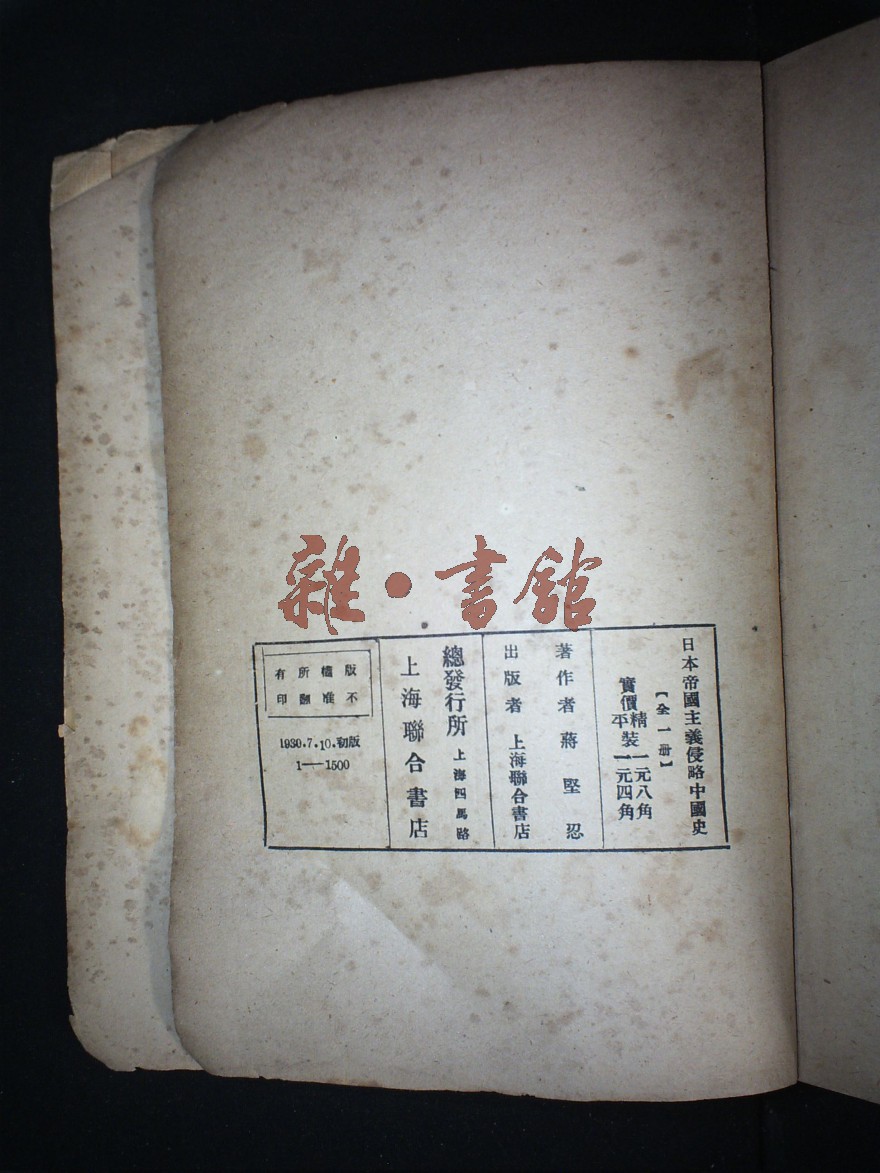 雜·書舘
日本帝國主義侵略中國史
【全一册】
實價精裝一元八角
平裝一元四角
著作者 蔣堅忍
出版者 上海聯合書店
總發行所 上海四馬路
上海聯合書店
版權所有
不准翻印
1930.7.10.初版
1——1500